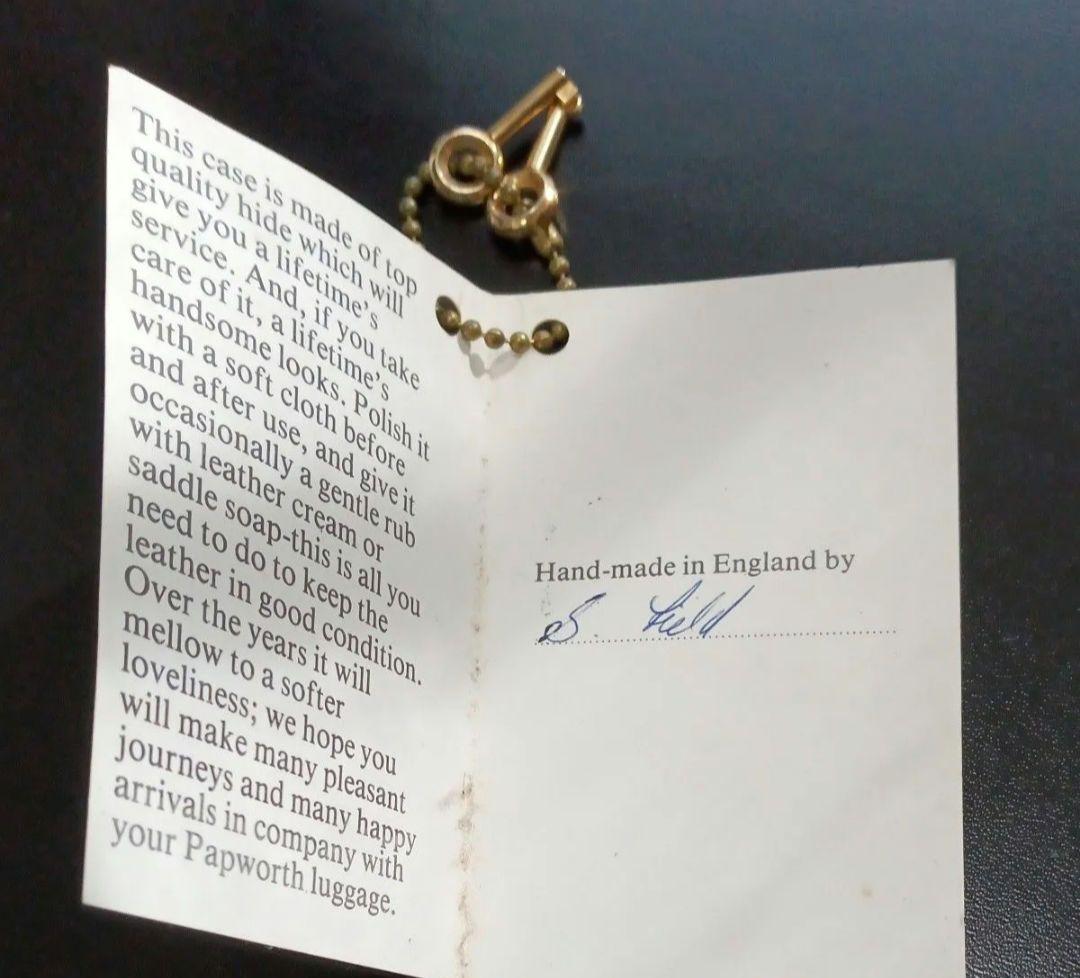 This case is made of top
quality hide which will
give you a lifetime's
service. And, if you take
care of it, a lifetime's
handsome looks. Polish it
with a soft cloth before
and after use, and give it
occasionally a gentle rub
with leather cream or
saddle soap-this is all you
need to do to keep the
leather in good condition.
Over the years it will
mellow to a softer
loveliness; we hope you
will make many pleasant
journeys and many happy
arrivals in company with
your Papworth luggage.
Hand-made in England by
S. Field